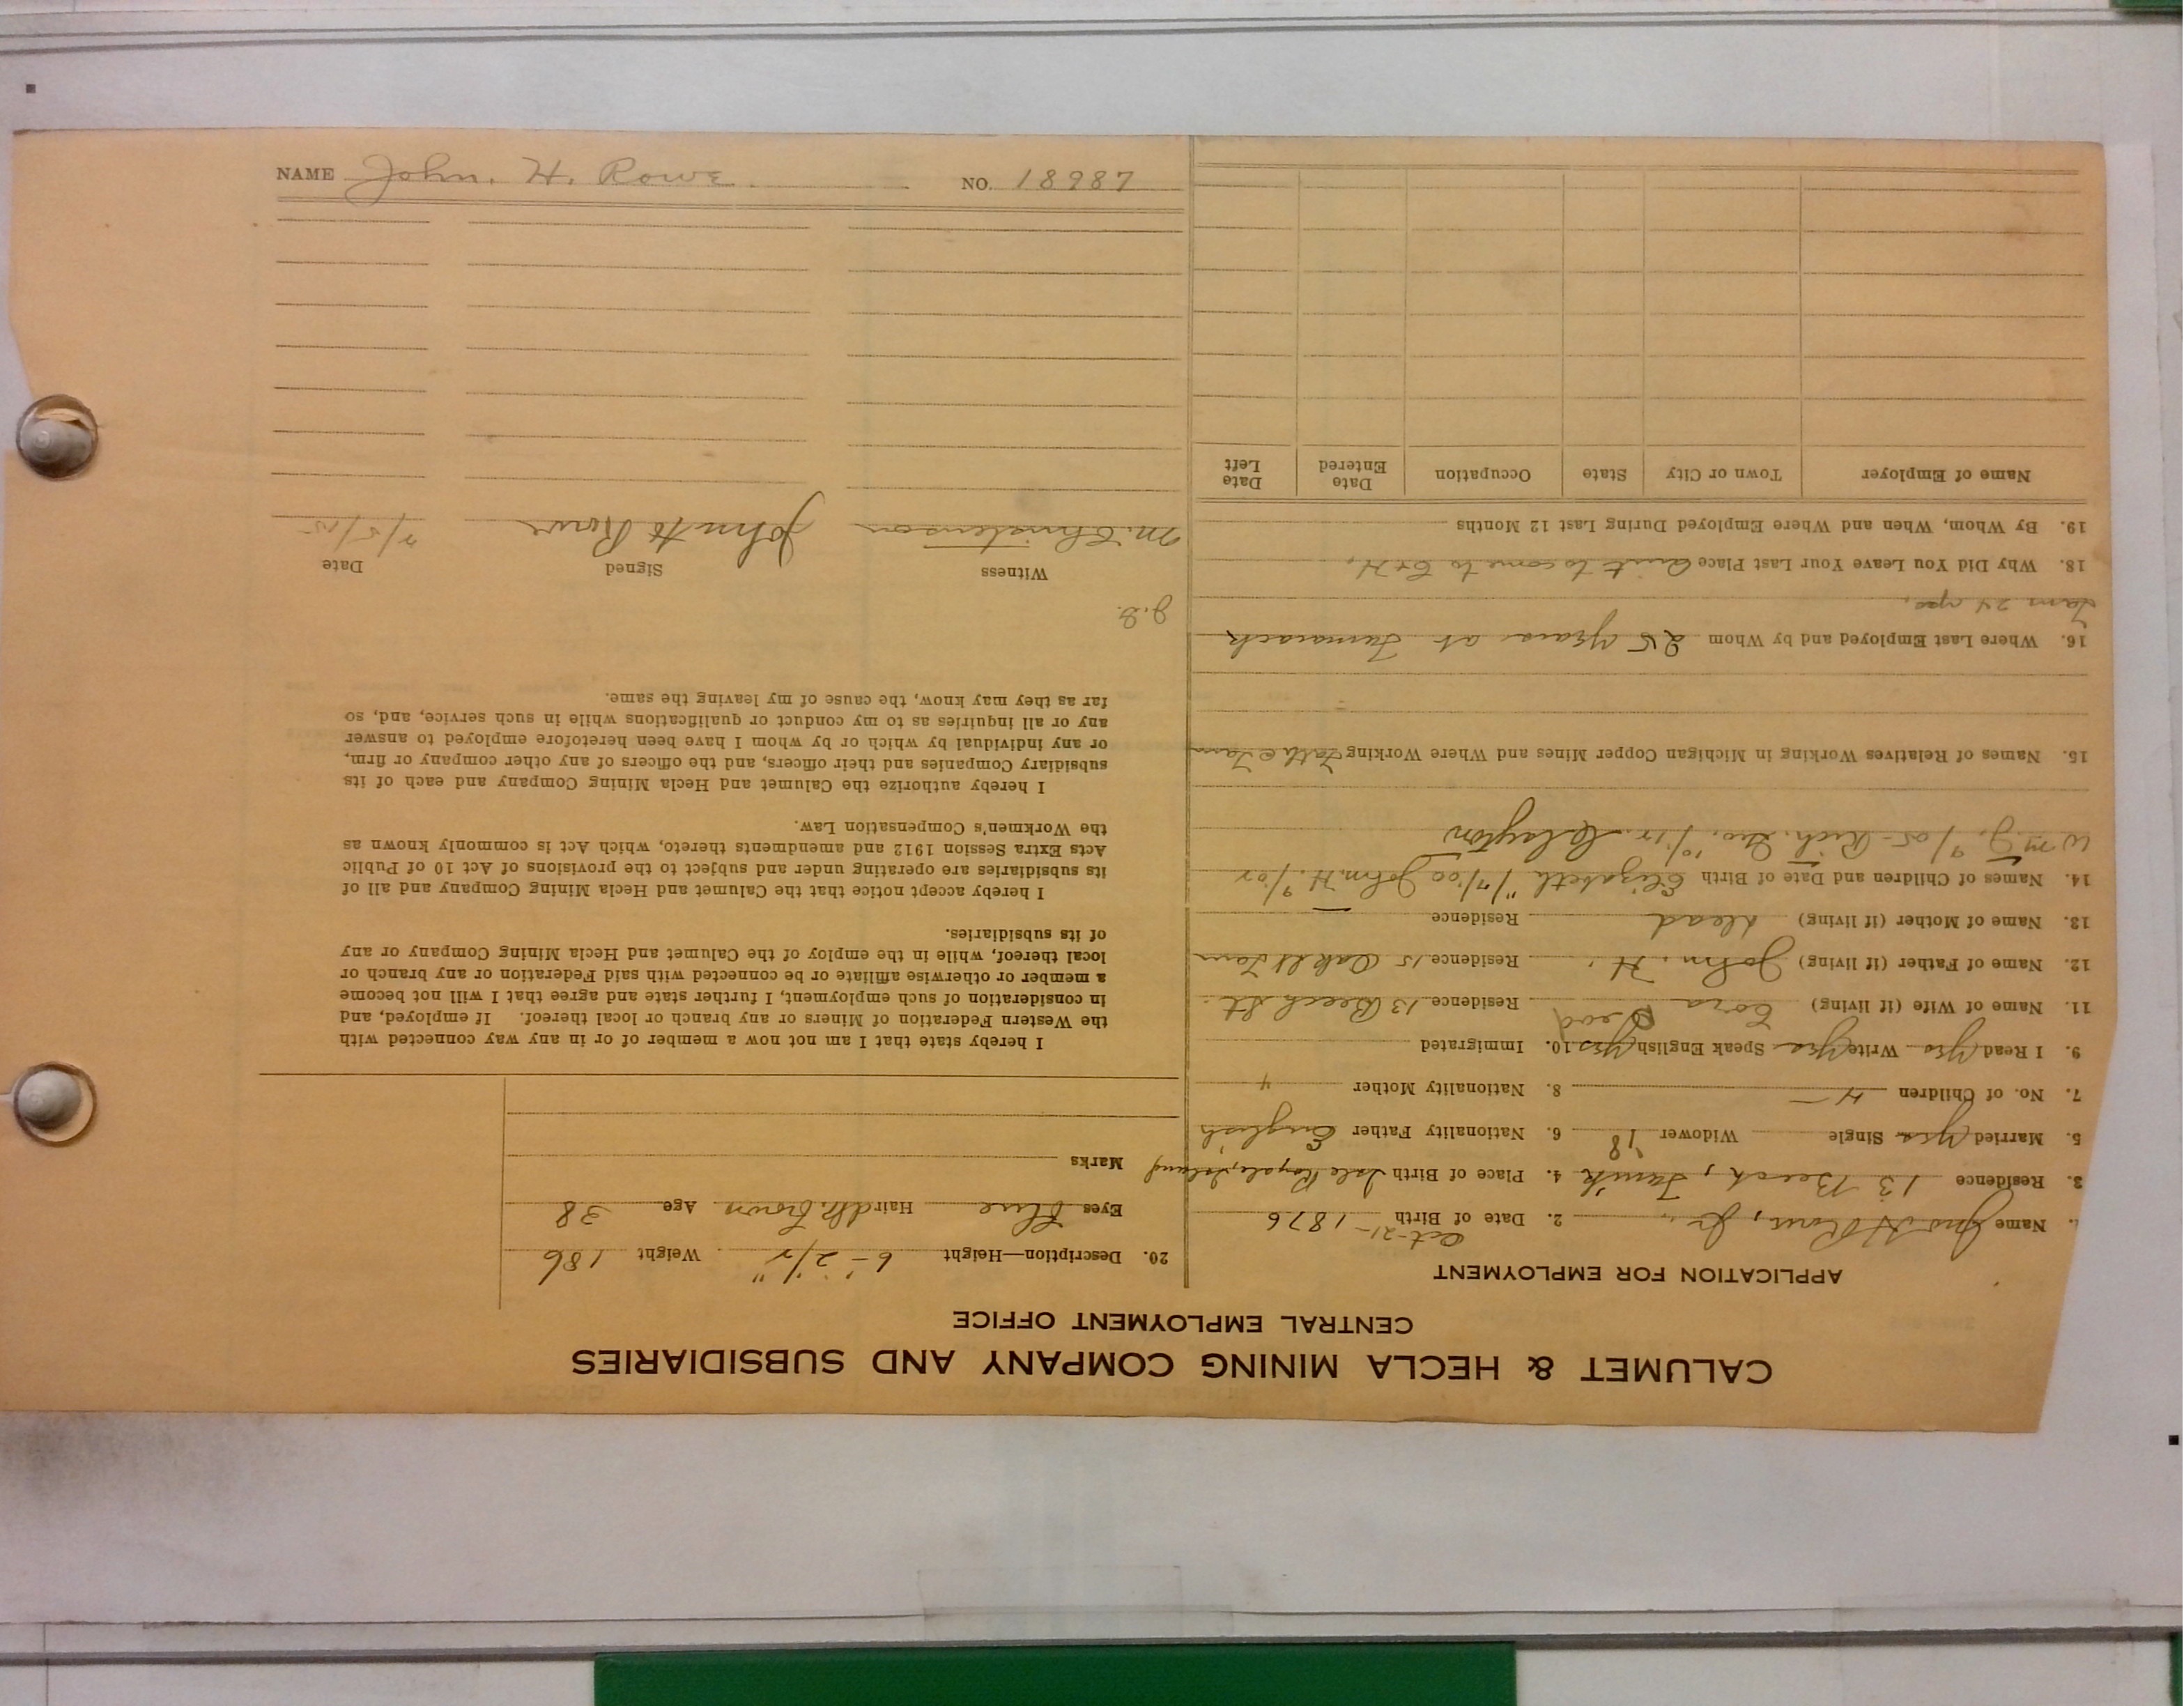 NAME John. H. Rowe. NO. 18987
CALUMET & HECLA MINING COMPANY AND SUBSIDIARIES
CENTRAL EMPLOYMENT OFFICE
APPLICATION FOR EMPLOYMENT
1. Name Jno H Rowe, Jr. 2. Date of Birth Oct-21-1876
3. Residence 13 Beech, Tamk 4. Place of Birth Isle Royale, Island
5. Married Yes Single Widower 18 6. Nationality Father English
7. No. of Children 4 8. Nationality Mother "
9. I Read Yes Write Yes Speak English Yes 10. Immigrated
11. Name of Wife (if living) Cora Dead Residence 13 Beech St.
12. Name of Father (if living) John. H. Residence 15 Oak St Tam
13. Name of Mother (if living) dead Residence —
14. Names of Children and Date of Birth Elizabeth John. H.
Wm J. Rich. Geo. Clayton
15. Names of Relatives Working in Michigan Copper Mines and Where Working Father Tam
16. Where Last Employed and by Whom 25 years at Tamarack
Tam 24 yrs.
18. Why Did You Leave Your Last Place Quit to come to C&H.
19. By Whom, When and Where Employed During Last 12 Months
Name of Employer Town or City State Occupation Date Entered Date Left
20. Description—Height 6'-2½" Weight 186
Eyes Blue Hair dk. brown Age 38
Marks
I hereby state that I am not now a member of or in any way connected with
the Western Federation of Miners or any branch or local thereof. If employed, and
in consideration of such employment, I further state and agree that I will not become
a member or otherwise affiliate or be connected with said Federation or any branch or
local thereof, while in the employ of the Calumet and Hecla Mining Company or any
of its subsidiaries.
I hereby accept notice that the Calumet and Hecla Mining Company and all of
its subsidiaries are operating under and subject to the provisions of Act 10 of Public
Acts Extra Session 1912 and amendments thereto, which Act is commonly known as
the Workmen's Compensation Law.
I hereby authorize the Calumet and Hecla Mining Company and each of its
subsidiary Companies and their officers, and the officers of any other company or firm,
or any individual by which or by whom I have been heretofore employed to answer
any or all inquiries as to my conduct or qualifications while in such service, and, so
far as they may know, the cause of my leaving the same.
Witness Signed Date
M. Christenson John H Rowe 7/5/15